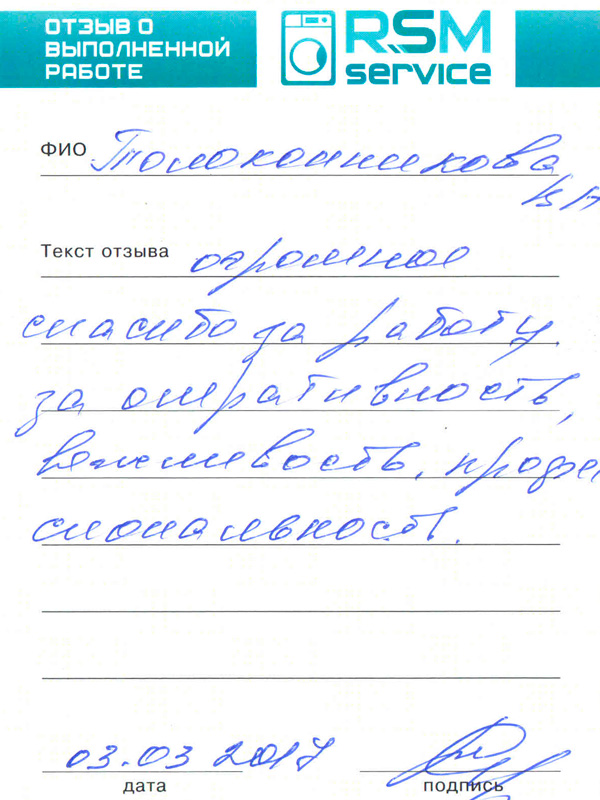 ОТЗЫВ О
ВЫПОЛНЕННОЙ
РАБОТЕ
RSM
service
ФИО Толоконникова
Текст отзыва огромное
спасибо за работу,
за оперативность,
вежливость, профе
сиональность.
03.03 2017
дата подпись